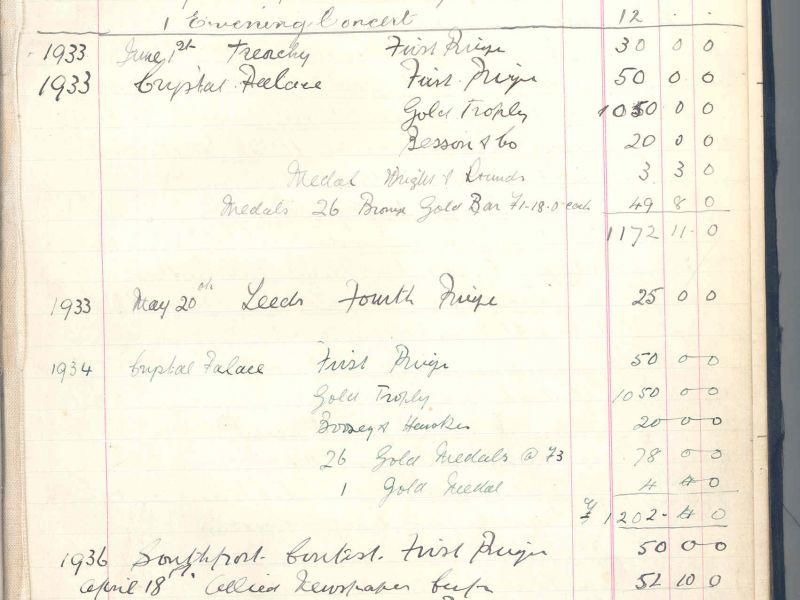 1 Evening Concert 12 . .
1933 June 1st Treorchy First Prize 30 0 0
1933 Crystal Palace First Prize 50 0 0
Gold Trophy 1050 0 0
Besson & Co 20 0 0
Medal Wright & Rounds 3 3 0
Medals 26 Bronze Gold Bar £1-18-0 each 49 8 0
1172 11 0
1933 May 20th Leeds Fourth Prize 25 0 0
1934 Crystal Palace First Prize 50 0 0
Gold Trophy 1050 0 0
Boosey & Hawkes 20 0 0
26 Gold Medals @ £3 78 0 0
1 Gold Medal 4 4 0
£ 1202 - 4 0
1936 Southport Contest. First Prize 50 0 0
April 18th Allied Newspaper 52 10 0